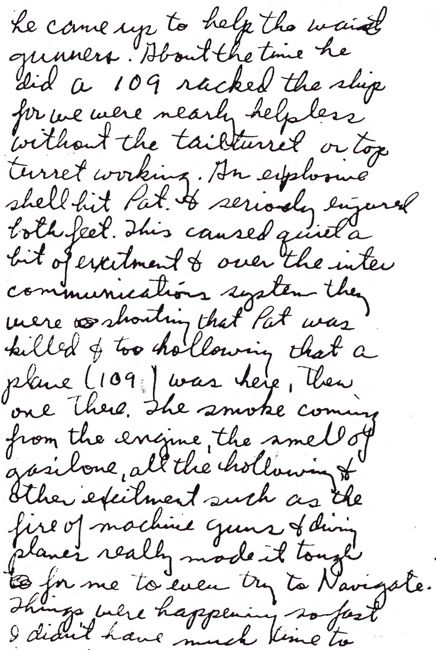 he came up to help the waist
gunners. About the time he
did a 109 racked the ship
for we were nearly helpless
without the tail turret or top
turret working. An explosive
shell hit Pat. & seriosly enjured
both feet. This caused quiet a
bit of excitment & over the inter
communications system they
were shouting that Pat was
killed & too hollowing that a
plane (109) was here, then
one there. The smoke coming
from the engine, the smell of
gasilone, all the hollowing &
other excitment such as the
fire of machine guns & diving
planes really made it tough
for me to even try to Navigate.
Things were happening so fast
I didn't have much time to